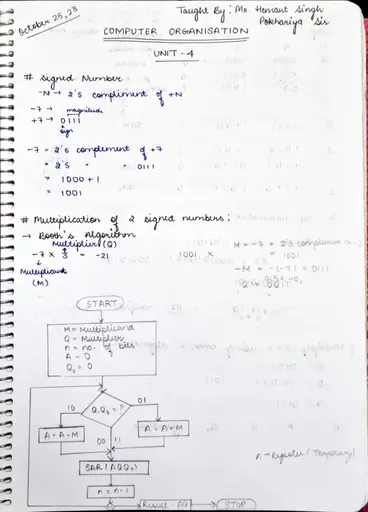 October 25, 23
Taught By: Mr Hemant Singh
Pokhariya Sir
COMPUTER ORGANISATION
UNIT - 4
# Signed Number
-N → 2's compliment of +N
-7 → magnitude
+7 → 0111
sign
-7 = 2's complement of +7
= 2's " " 0111
= 1000 + 1
= 1001
# Multiplication of 2 signed numbers:
→ Booth's Algorithm
Multiplier (Q)
-7 × 3 = -21
Multiplicand
(M)
1001 ×
M = -7 = 2's
= 1001
-M = -(-7) = 0111
START
M = Multiplicand
Q = Multiplier
n = no. of bits
A = 0
Q₀ = 0
10
01
00
11
A = A - M
A = A + M
SAR (AQQ₀)
n = n - 1
Result AQ
STOP
A → Register / Temporary /